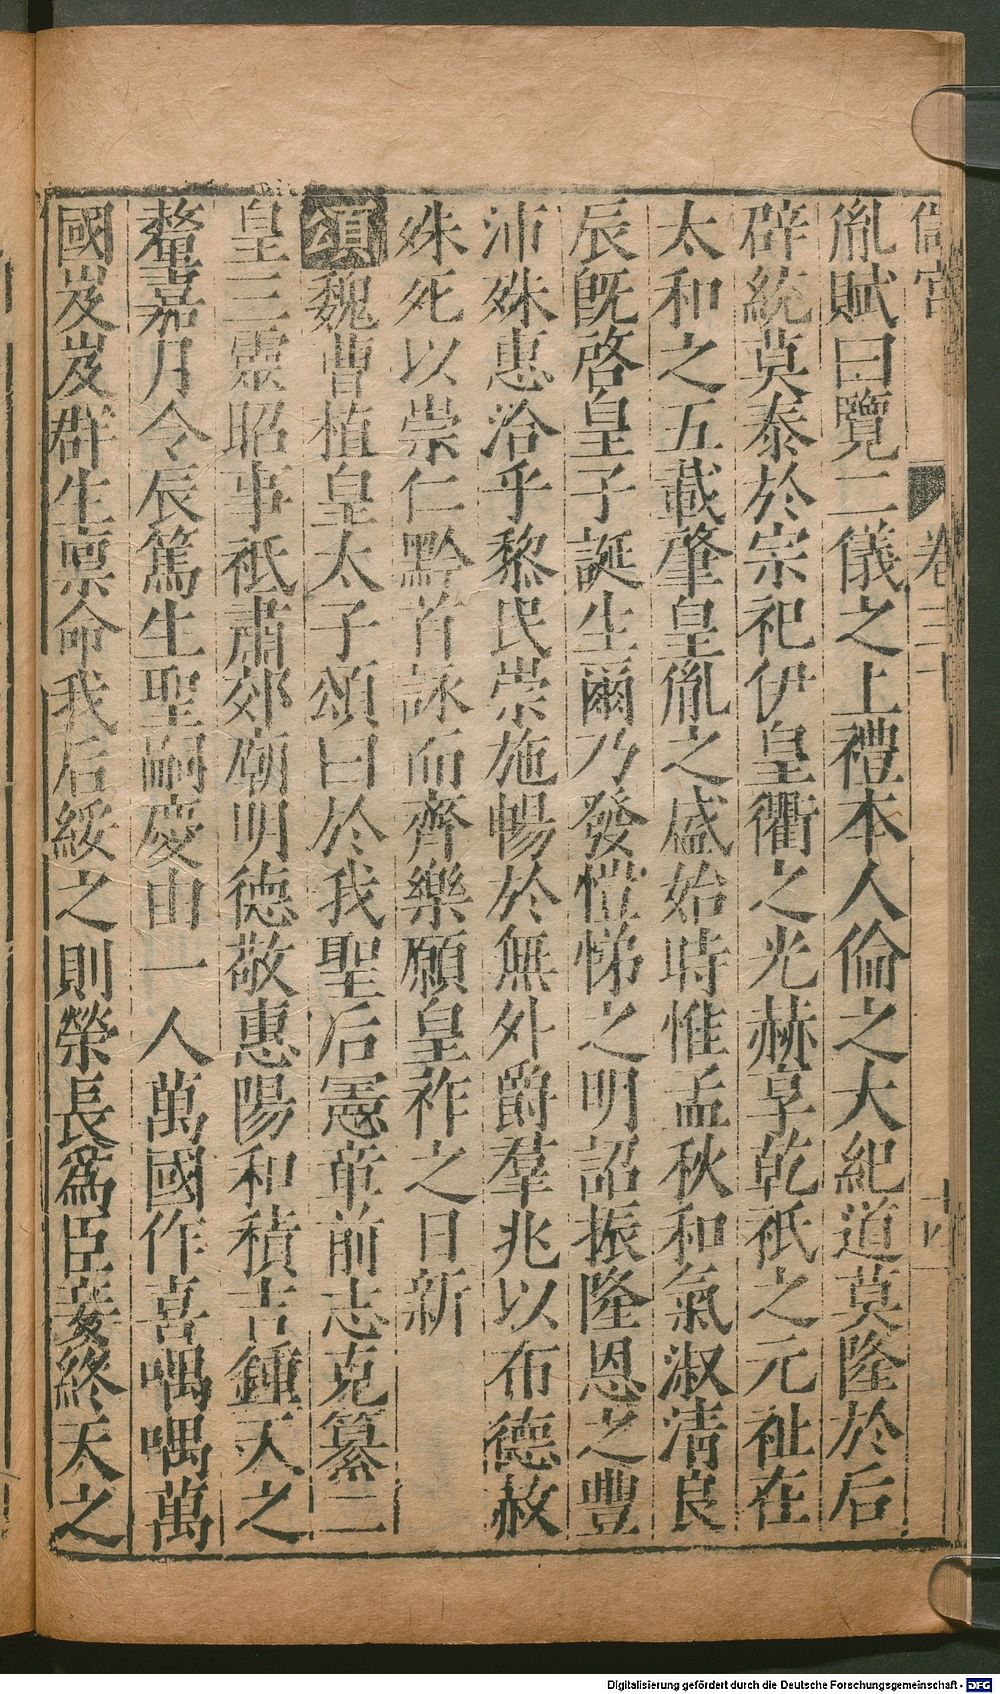 儲宮 卷二十
胤賦曰覽二儀之上禮本人倫之大紀道莫隆於后
辟統莫泰於宗祀伊皇衢之光赫享乾祇之元祉在
太和之五載肇皇胤之盛始時惟孟秋和氣淑清良
辰既啓皇子誕生爾乃發愷悌之明詔振隆恩之豐
沛殊惠洽乎黎民崇施暢於無外爵羣兆以布德赦
殊死以崇仁黔首詠而齊樂願皇祚之日新
頌魏曹植皇太子頌曰於我聖后憲章前志克纂二
皇三靈昭事祗肅郊廟明德敬惠陽和積吉鍾天之
釐嘉月令辰篤生聖嗣慶由一人萬國作喜喁喁萬
國岌岌群生稟命我后綏之則榮長爲臣妾終天之
Digitalisierung gefördert durch die Deutsche Forschungsgemeinschaft - DFG